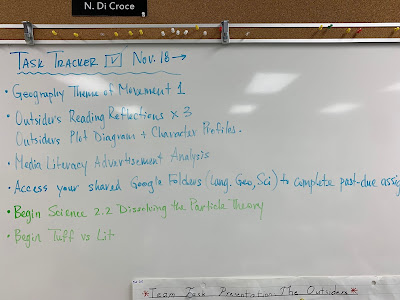 N. Di Croce
TASK TRACKER ☑ Nov. 18 →
• Geography Theme of Movement 1
• Outsiders Reading Reflections x 3
Outsiders Plot Diagram + Character Profiles.
• Media Literacy Advertisement Analysis
• Access your shared Google Folders (Lang. Geo, Sci) to complete past-due assig
• Begin Science 2.2 Dissolving the Particle Theory
• Begin Tuff vs Lit
*Team Task Presentation The Outsiders*